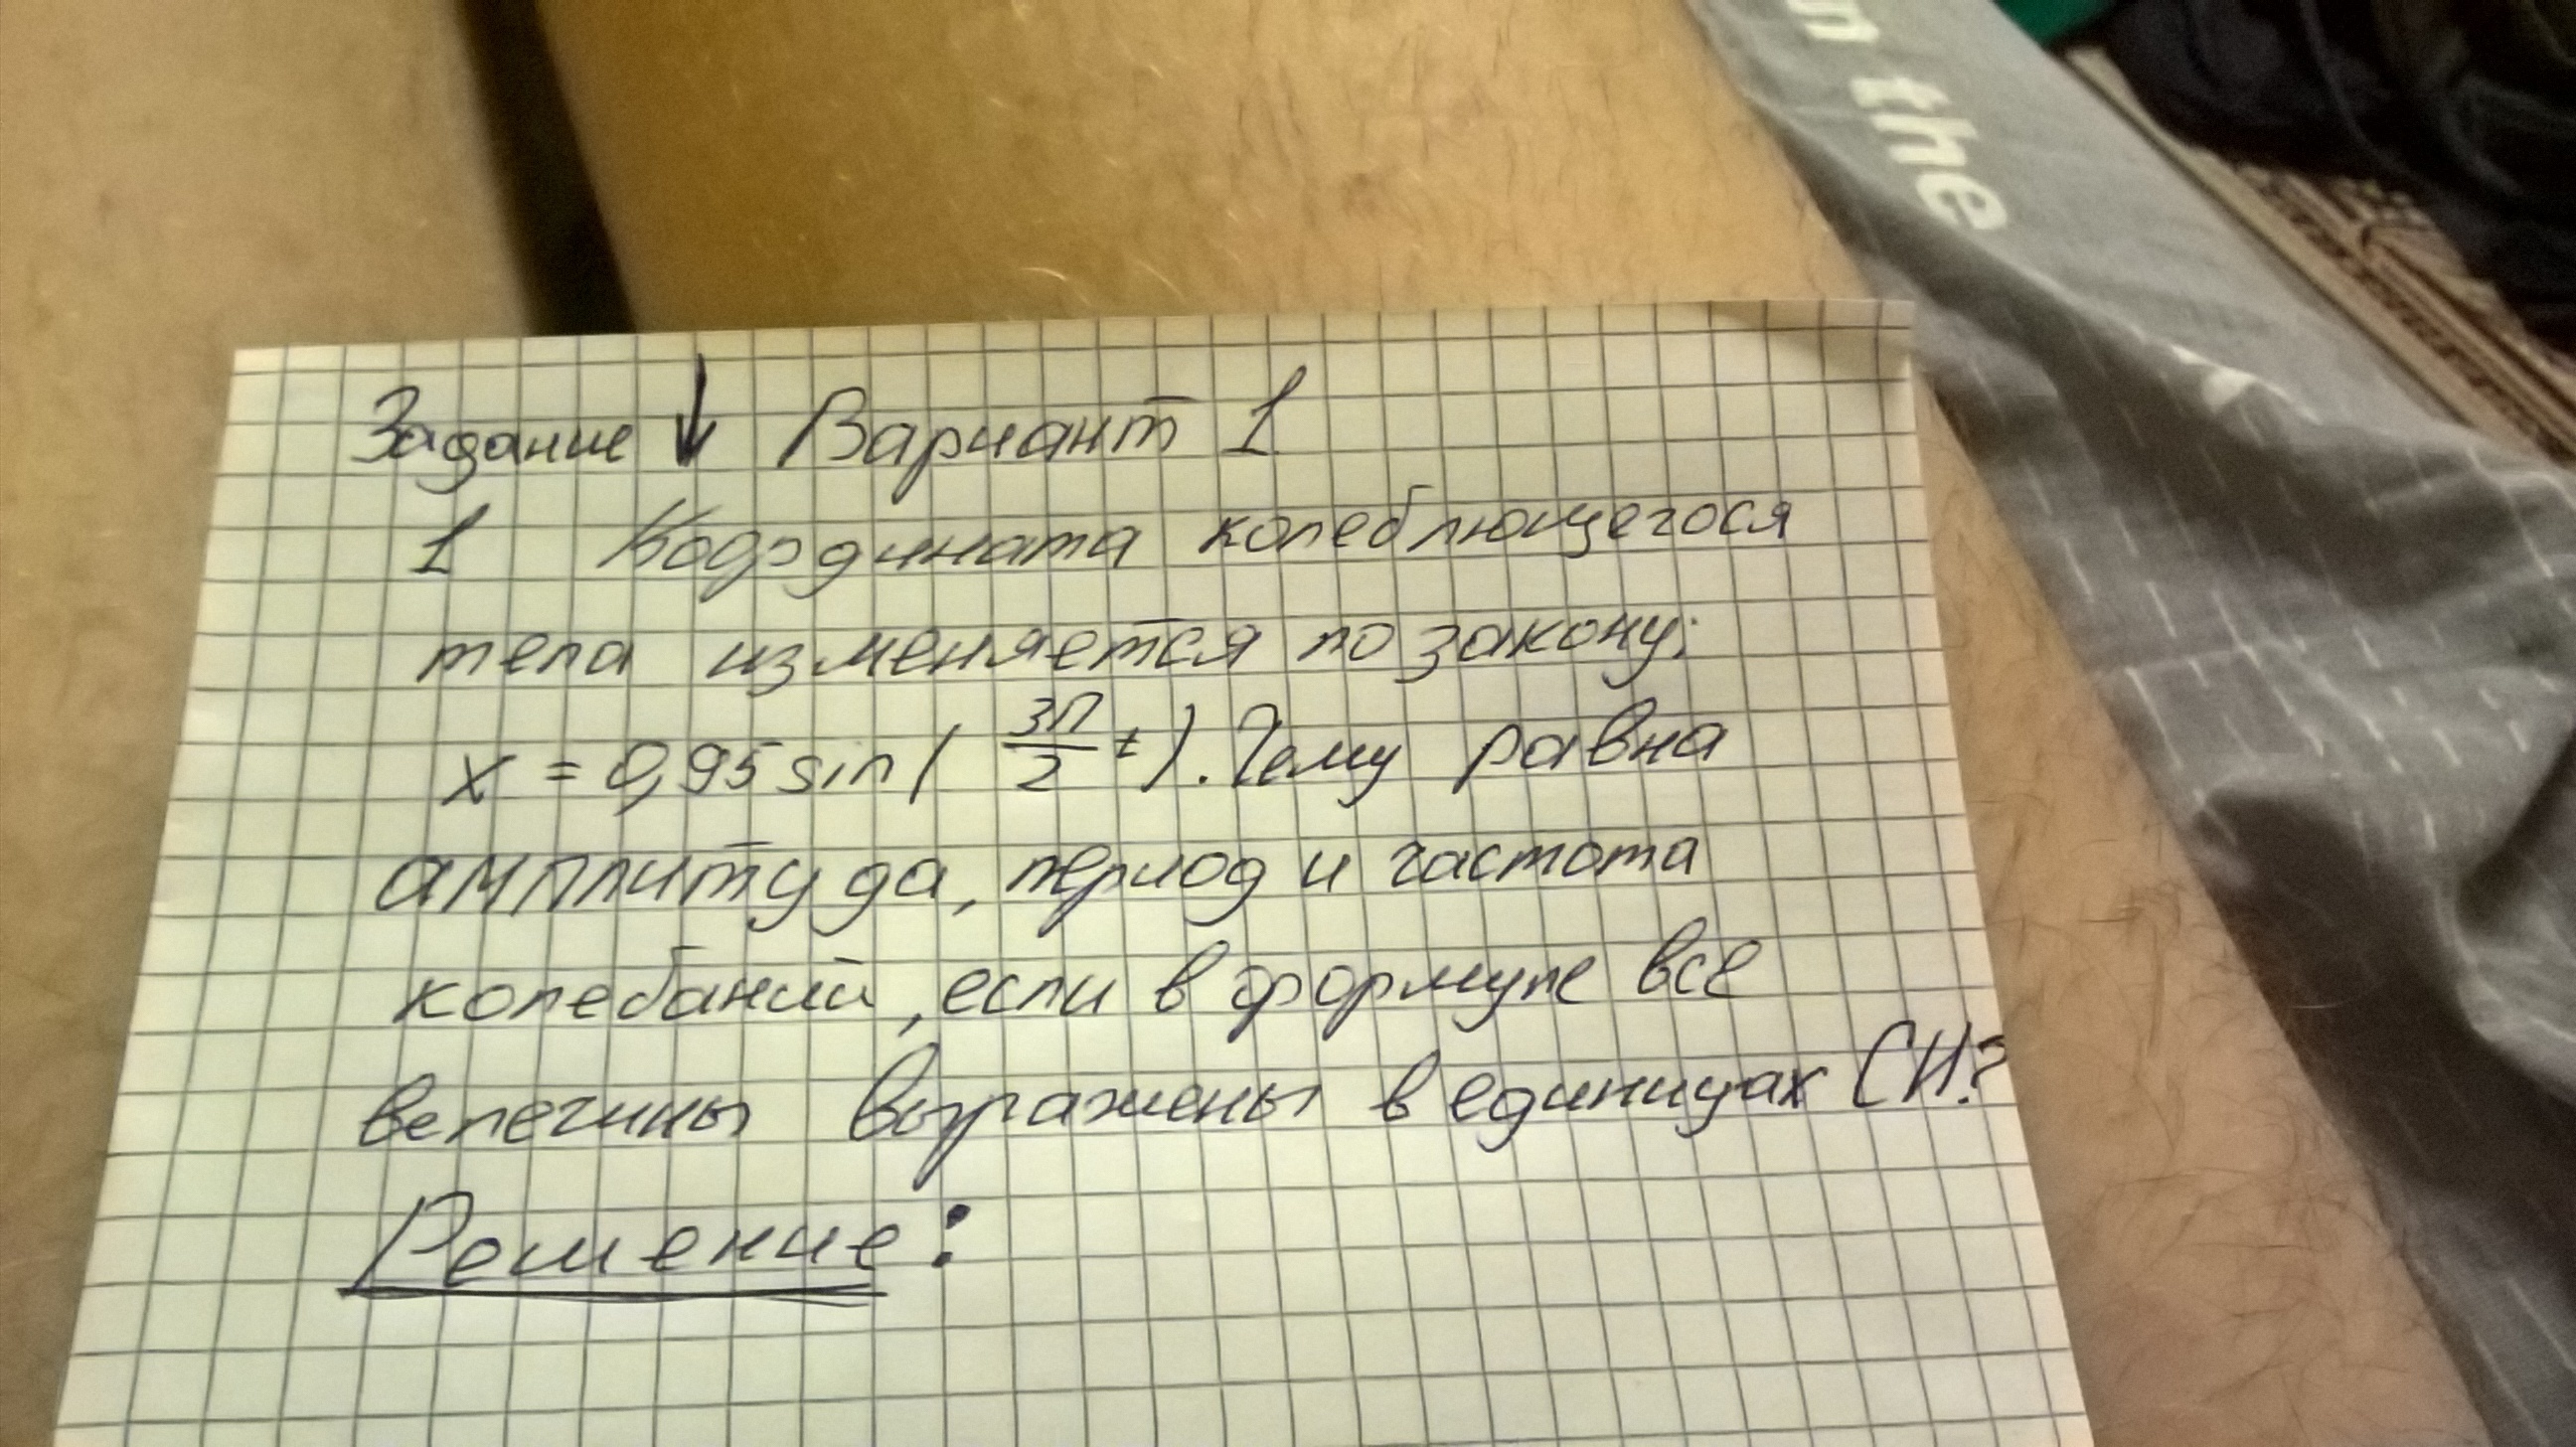 n the
Задание ↓ Вариант 1
1 Координата колеблющегося
тела изменяется по закону:
x = 0,95 sin ( 3П/2 t ). Чему равна
амплитуда, период и частота
колебаний, если в формуле все
велечины выражены в единицах СИ?
Решение: